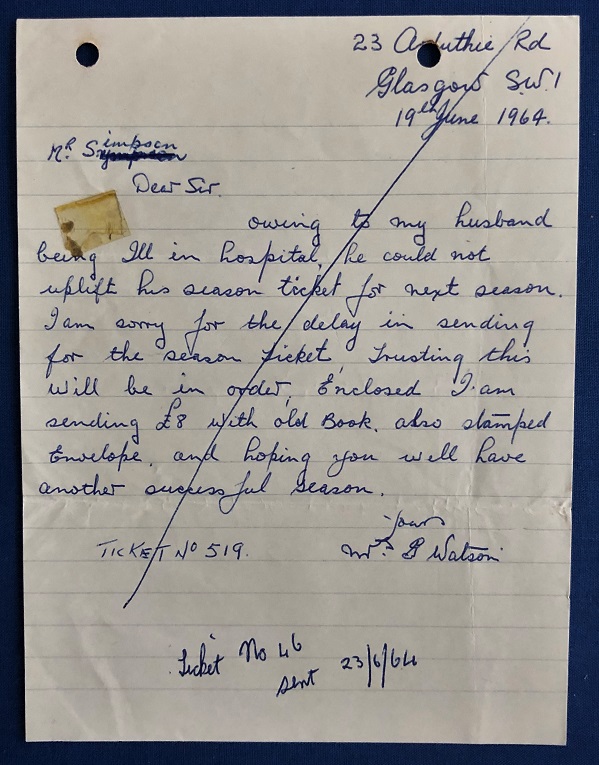 23 Arduthie Rd
Glasgow S.W.1
19th June 1964.
Mr. Simpson
Dear Sir.
owing to my husband
being Ill in hospital, he could not
uplift his season ticket for next season.
I am sorry for the delay in sending
for the season ticket, Trusting this
will be in order, Enclosed I am
sending £8 with old Book. also stamped
Envelope. and hoping you will have
another successful season.
Yours
Mrs. Watson
TICKET No 519.
Ticket No 46
sent 23/6/64